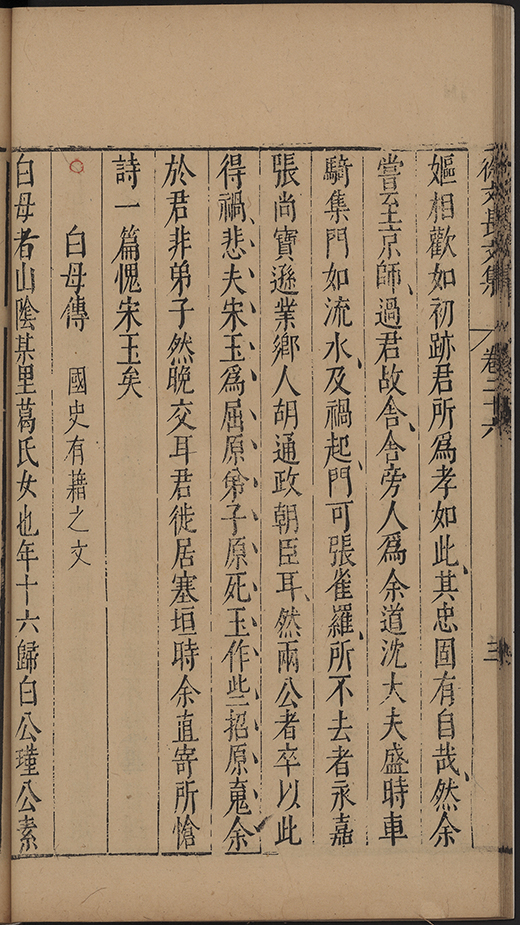 徐文長文集 卷二十六 三
嫗相歡如初跡君所為孝如此其忠固有自哉然余
嘗至京師過君故舍舍旁人為余道沈大夫盛時車
騎集門如流水及禍起門可張雀羅所不去者永嘉
張尚寶遜業鄉人胡通政朝臣耳然兩公者卒以此
得禍悲夫宋玉為屈原弟子原死玉作些招原䰟余
於君非弟子然晚交耳君徙居塞垣時余直寄所愴
詩一篇愧宋玉矣
白母傳 國史有藉之文
白母者山陰某里葛氏女也年十六歸白公瑾公素